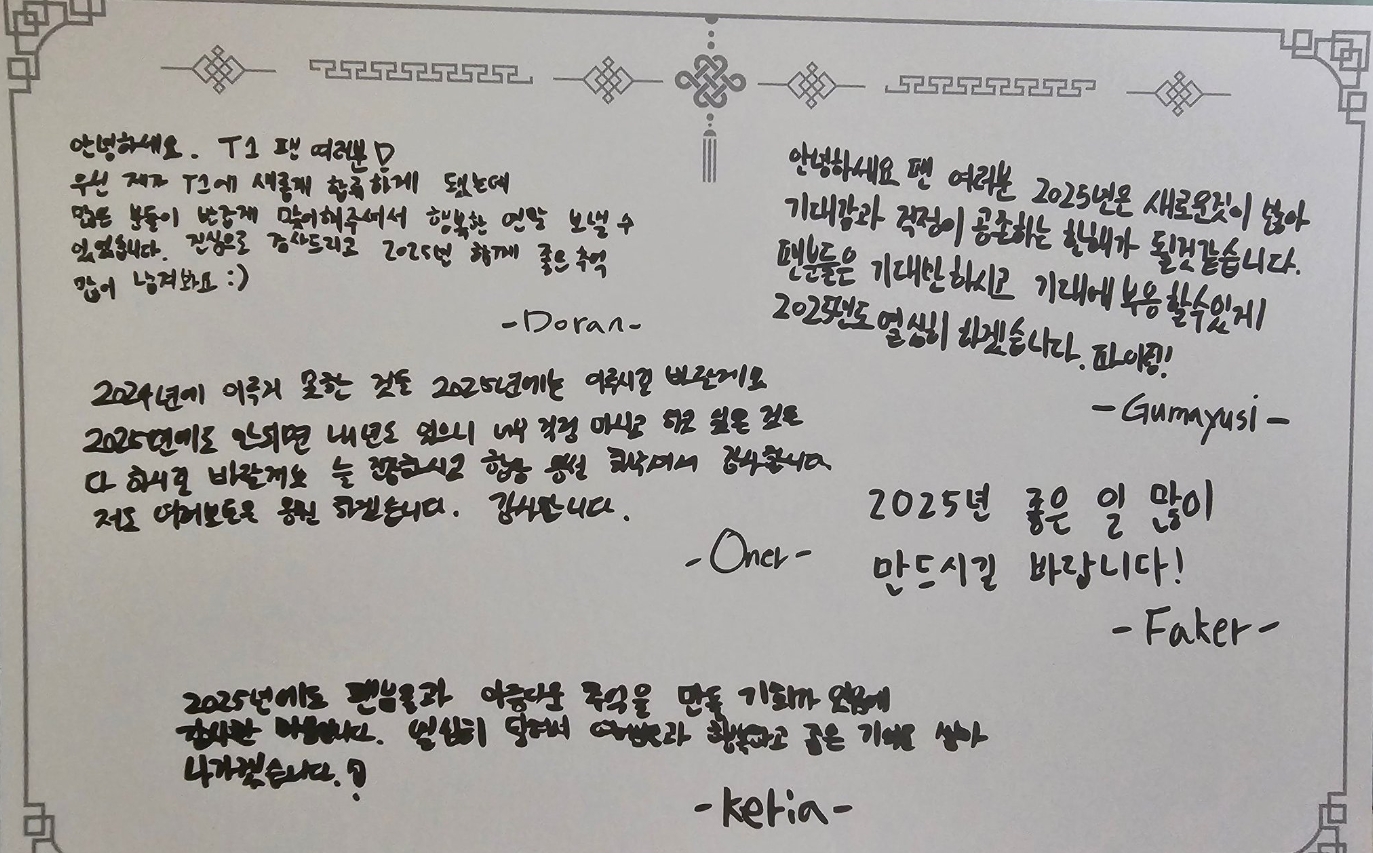 안녕하세요. T1 팬 여러분!
우선 제가 T1에 새롭게 합류하게 됐는데
많은 분들이 반갑게 맞이해주셔서 행복한 연말 보낼 수
있었습니다. 진심으로 감사드리고 2025년 함께 좋은 추억
많이 남겨봐요 :)
-Doran-
안녕하세요 팬 여러분 2025년은 새로운것이 많아
기대감과 걱정이 공존하는 한해가 될것같습니다.
팬분들은 기대만하시고 기대에 부응할수있게
2025년도 열심히 하겠습니다. 파이팅!
-Gumayusi-
2024년에 이루지 못한 것들 2025년에는 이루시길 바랄게요
2025년에도 안되면 내년도 있으니 너무 걱정 마시고 하고 싶은 것은
다 하시길 바랄게요 늘 건강하시고 항상 응원 감사합니다
저도 응원 하겠습니다. 감사합니다.
-Oner-
2025년 좋은 일 많이
만드시길 바랍니다!
-Faker-
2025년에도 팬분들과 아름다운 추억을 만들 기회가 있음에
감사한 마음입니다. 열심히 달려서 행복하고 좋은 기억을 쌓아
나가겠습니다.!
-keria-